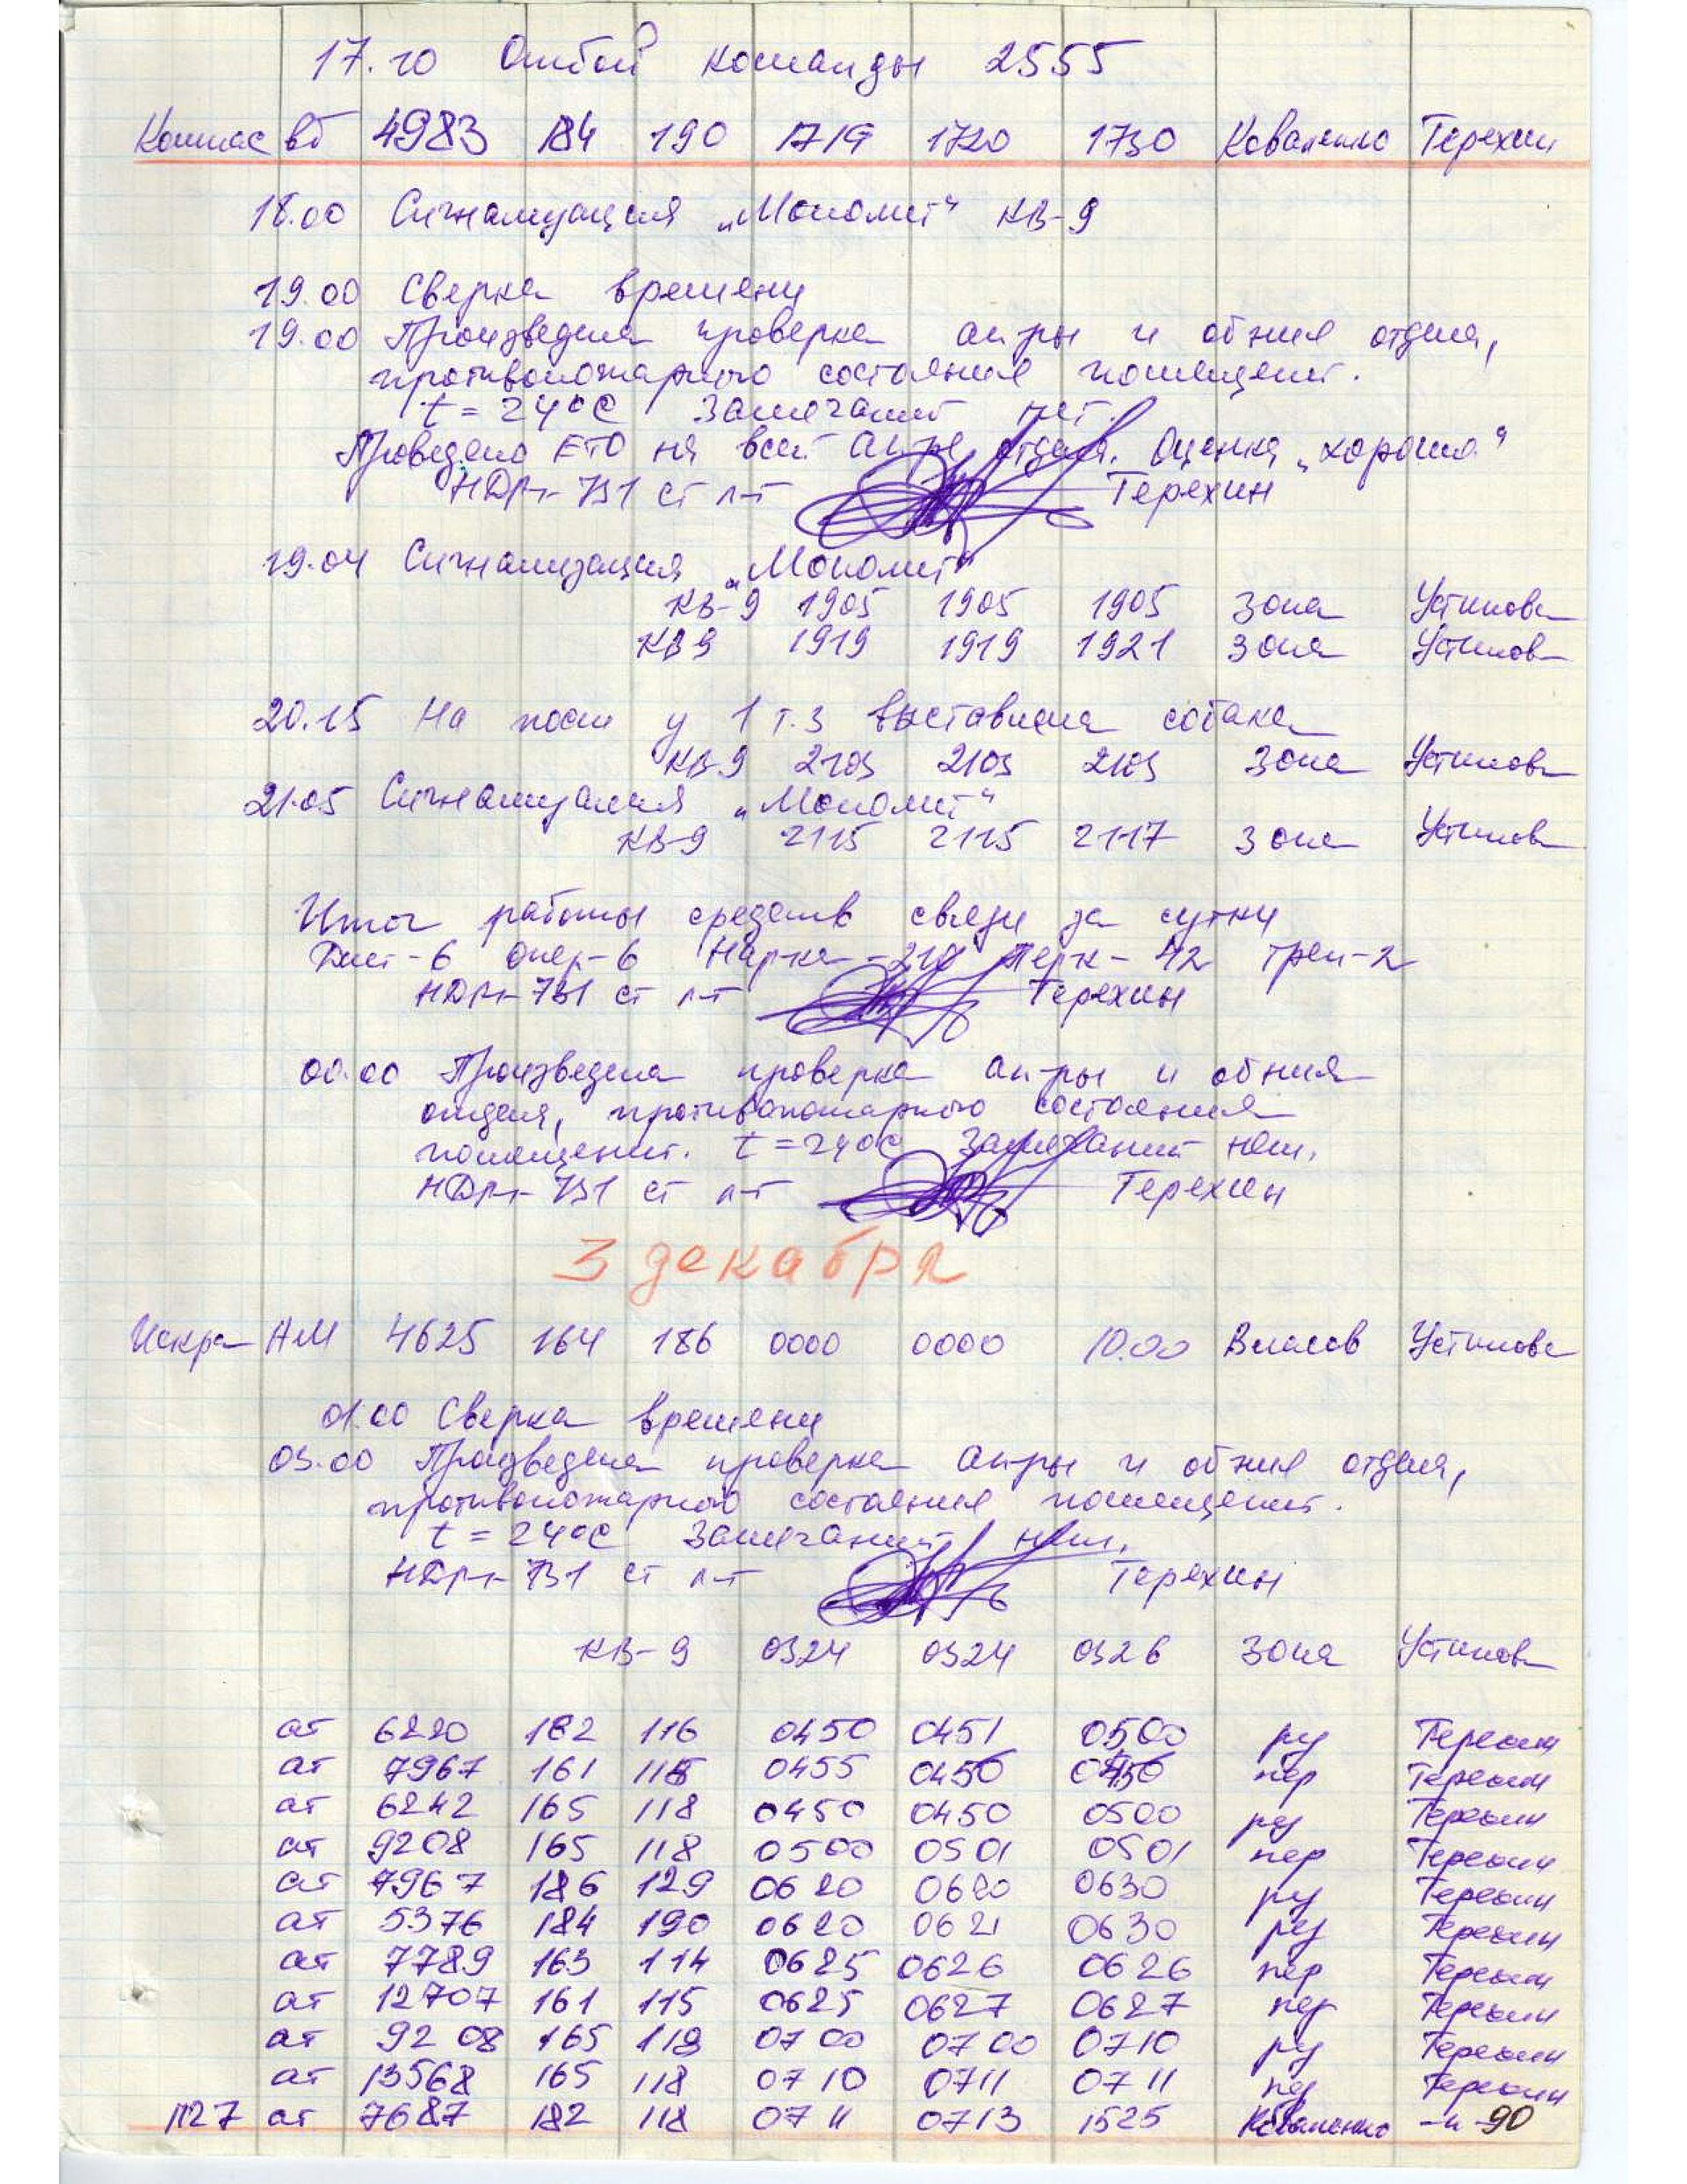 17.10 Отбой команды 2555
Компас вб 4983 184 190 1719 1720 1730 Коваленко Терехин
18.00 Сигнализация „Монолит“ КВ-9
19.00 Сверка времени
19.00 Произведена проверка ап-ры и об-ния отдел,
противопожарного состояния помещений.
t = 24°С Замечаний нет.
Проведено ЕТО на всей ап-ре отдела. Оценка „хорошо“
НДрт-731 ст л-т Терехин
19.04 Сигнализация „Монолит“
КВ-9 1905 1905 1905 Зона Устинов
КВ9 1919 1919 1921 Зона Устинов
20.15 На пост у 1 т.з выставлена собака
КВ-9 2103 2103 2103 Зона Устинов
21.05 Сигнализация „Монолит“
КВ-9 2115 2115 2117 Зона Устинов
Итог работы средств связи за сутки
Дист-6 Опер-6 -210 Перк-42 Трен-2
НДрт-731 ст л-т Терехин
00.00 Произведена проверка ап-ры и об-ния
отдел, противопожарного состояния
помещений. t = 24°С Замечаний нет.
НДрт-731 ст л-т Терехин
3 декабря
Искра НМ 4625 164 186 0000 0000 10.00 Власов Устинов
01.00 Сверка времени
03.00 Произведена проверка ап-ры и об-ния отдел,
противопожарного состояния помещений.
t = 24°С Замечаний нет.
НДрт-731 ст л-т Терехин
КВ-9 0324 0324 0326 Зона Устинов
ат 6220 182 116 0450 0451 0500 ру Терехин
ат 7967 161 118 0455 0456 0456 пер Терехин
ат 6242 165 118 0450 0450 0500 ру Терехин
ат 9208 165 118 0500 0501 0501 пер Терехин
ат 7967 186 129 0620 0620 0630 ру Терехин
ат 5376 184 190 0620 0621 0630 ру Терехин
ат 7789 163 114 0625 0626 0626 пер Терехин
ат 12707 161 115 0625 0627 0627 пер Терехин
ат 9208 165 118 0700 0700 0710 ру Терехин
ат 13568 165 118 0710 0711 0711 Терехин
П27 ат 7687 182 118 0711 0713 1525 Коваленко -и- 90